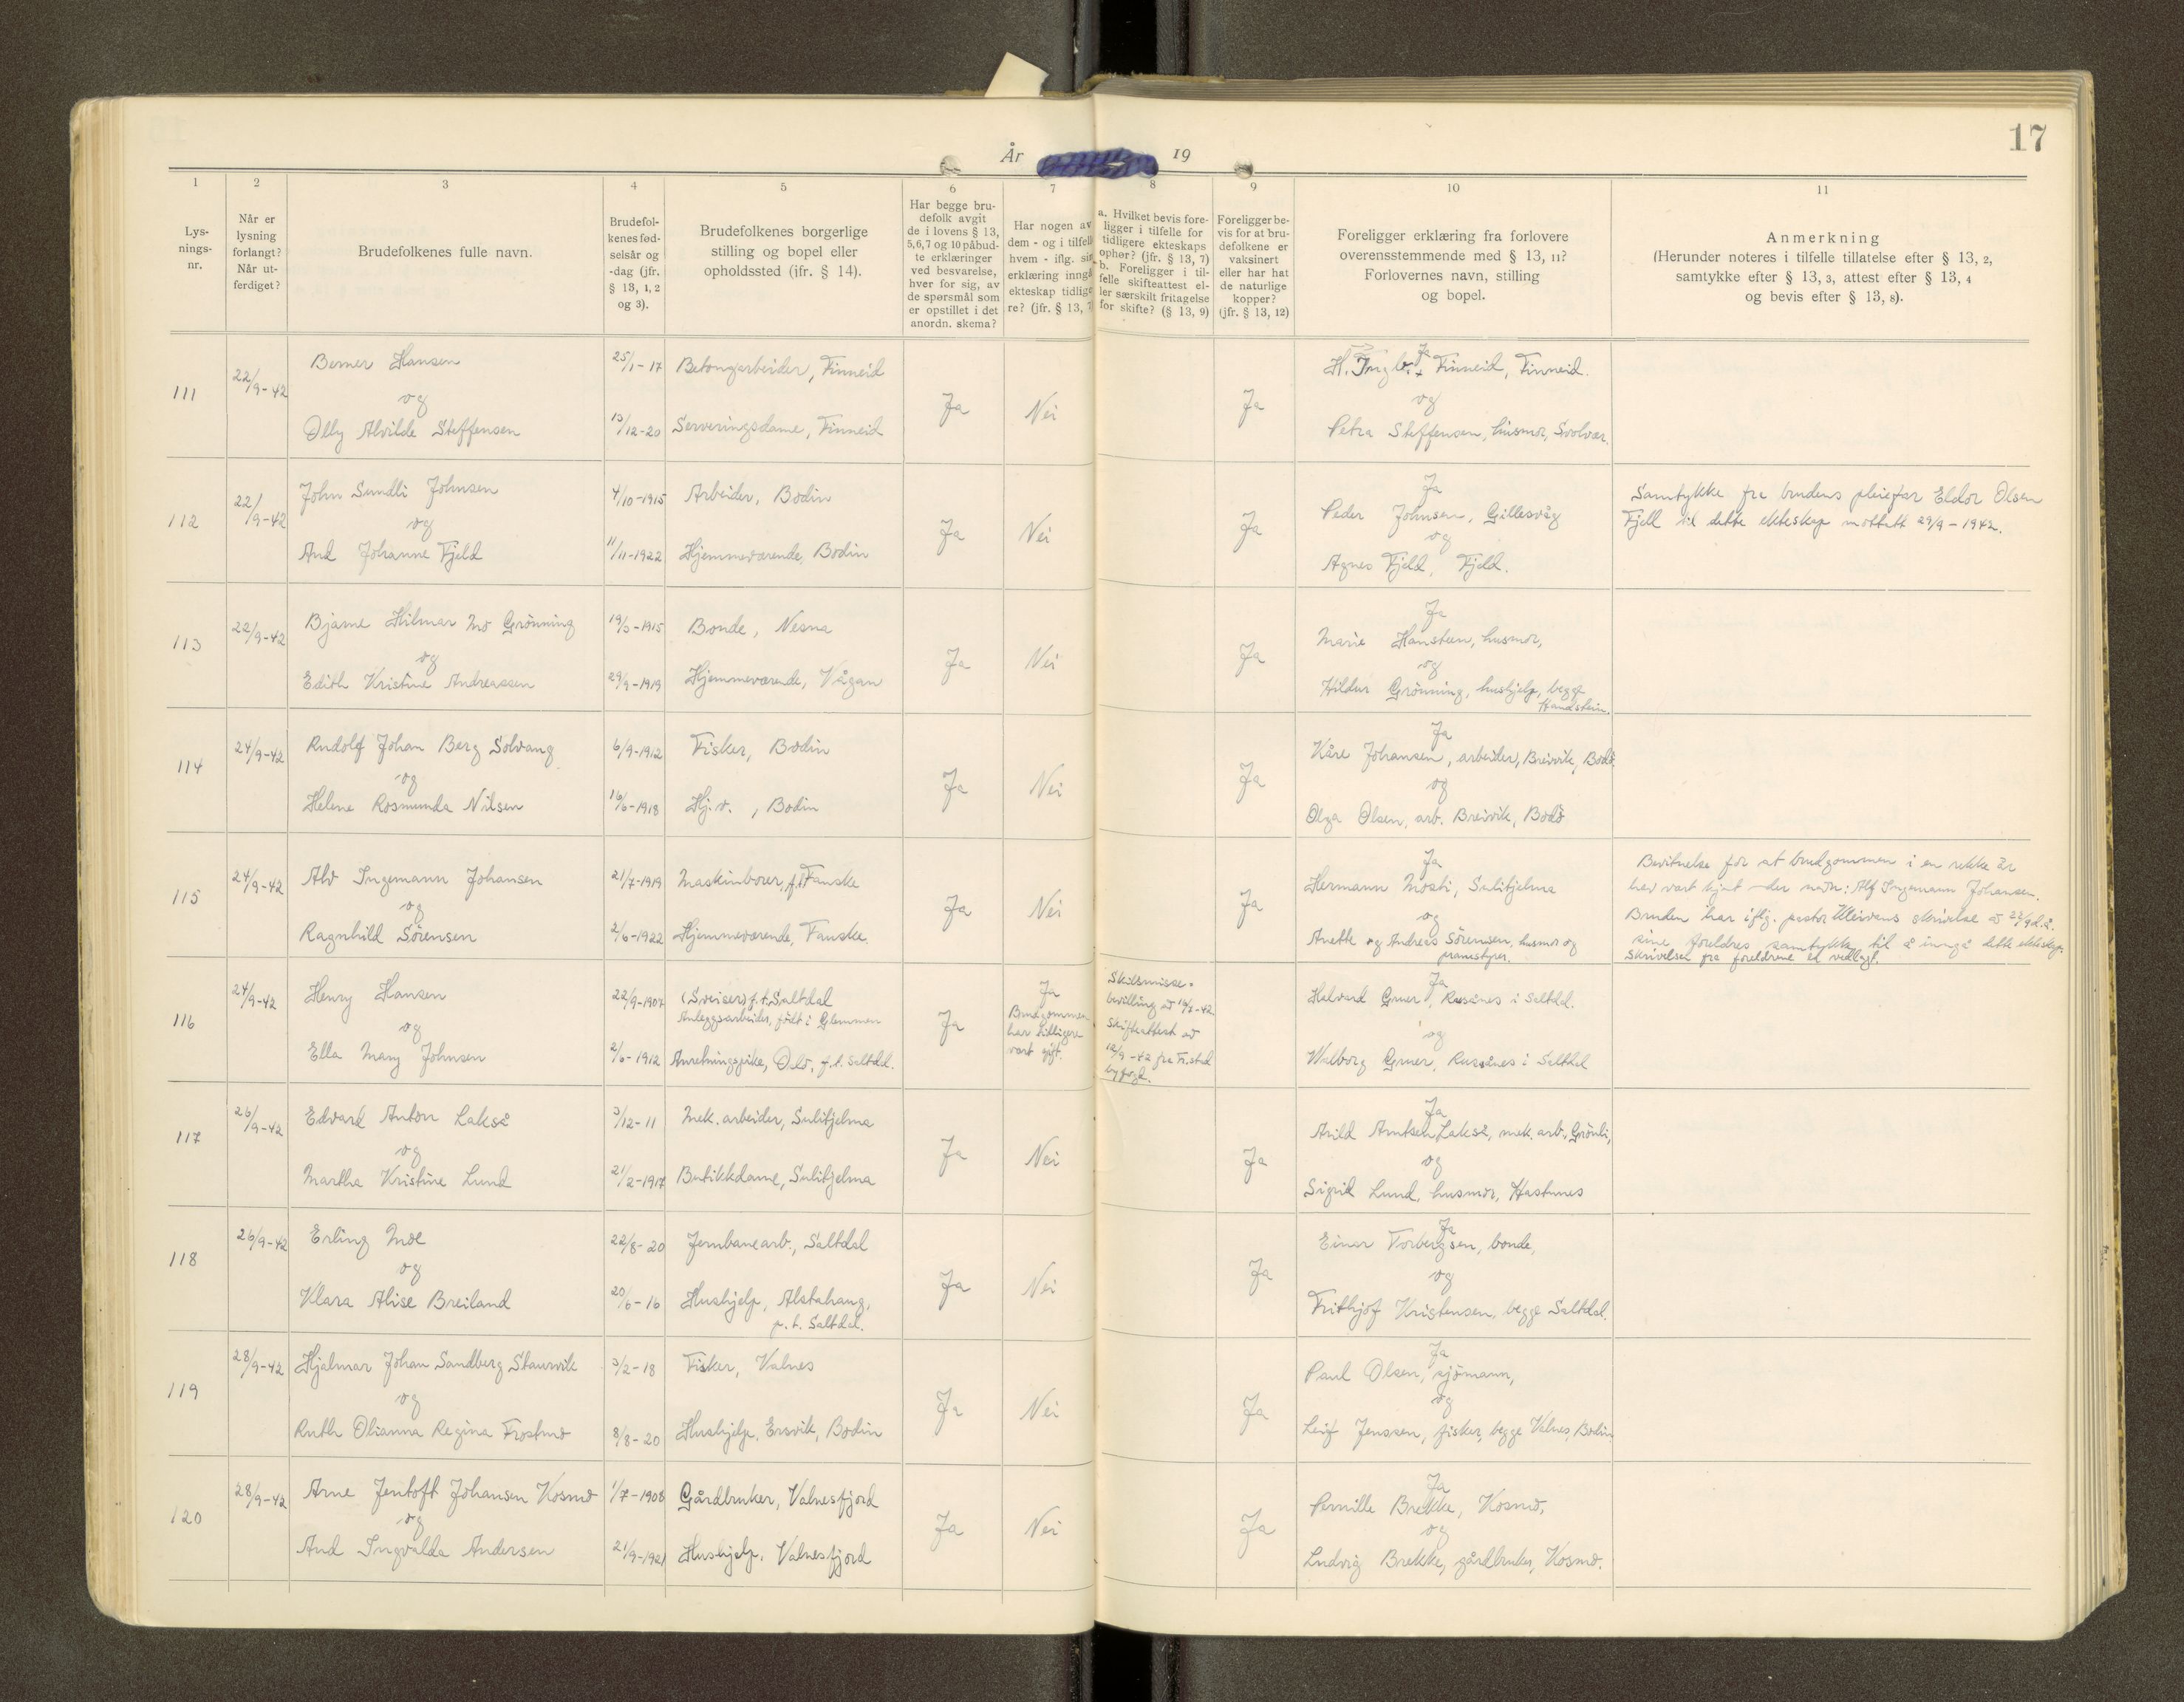 17
År 19
1 2 3 4 5 6 7 8 9 10 11
Lys-
nings-
nr.
Når er
lysning
forlangt?
Når ut-
ferdiget?
Brudefolkenes fulle navn.
Brudefol-
kenes fød-
selsår og
-dag (jfr.
§ 13, 1, 2
og 3).
Brudefolkenes borgerlige
stilling og bopel eller
opholdssted (jfr. § 14).
Har begge bru-
defolk avgit
de i lovens § 13,
5,6,7 og 10 påbud-
te erklæringer
ved besvarelse,
hver for sig, av
de spørsmål som
er opstillet i det
anordn. skema?
Har nogen av
dem - og i tilfelle
hvem - iflg. sin
erklæring inngå
ekteskap tidlige
re? (jfr. § 13, 7)
a. Hvilket bevis fore-
ligger i tilfelle for
tidligere ekteskaps
ophør? (jfr. § 13, 7)
b. Foreligger i til-
felle skifteattest el-
ler særskilt fritagelse
for skifte? (§ 13, 9)
Foreligger be-
vis for at bru-
defolkene er
vaksinert
eller har hat
de naturlige
kopper?
(jfr. § 13, 12)
Foreligger erklæring fra forlovere
overensstemmende med § 13, 11?
Forlovernes navn, stilling
og bopel.
Anmerkning
(Herunder noteres i tilfelle tillatelse efter § 13, 2,
samtykke efter § 13, 3, attest efter § 13, 4
og bevis efter § 13, 8).
111 22/9-42 Berner Hansen 25/1-17 Betongarbeider, Finneid
og Ja Nei Ja
Olly Alvilde Steffensen 13/12-20 Serveringsdame, Finneid
Ja
H. Finneid, Finneid.
og
Petra Steffensen, husmor, Svolvær.
112 22/9-42 John Sundli Johnsen 4/10-1915 Arbeider, Bodin
og Ja Nei Ja
Aud Johanne Fjeld 11/11-1922 Hjemmeværende, Bodin
Ja
Peder Johnsen, Gillesvåg
og
Agnes Fjeld, Fjeld.
Samtykke fra brudens pleiefar Eldor Olsen
Fjell til dette ekteskap mottatt 29/9-1942.
113 22/9-42 Bjarne Hilmar Mo Grönning 19/3-1915 Bonde, Nesna
og Ja Nei Ja
Edith Kristine Andreassen 29/9-1919 Hjemmeværende, Vågan
Ja
Marie Hansteen, husmor,
og
Hildur Grönning, hushjelp, begge
Handstein.
114 24/9-42 Rudolf Johan Berg Solvang 6/9-1912 Fisker, Bodin
og Ja Nei Ja
Helene Rosmunda Nilsen 16/6-1918 Hj.v., Bodin
Ja
Kåre Johansen, arbeider, Breivik, Bodö.
og
Olga Olsen, arb. Breivik, Bodö
115 24/9-42 Alv Ingemann Johansen 21/7-1919 Maskinborer, f.t. Fauske
og Ja Nei Ja
Ragnhild Sörensen 2/6-1922 Hjemmeværende, Fauske.
Ja
Hermann Mosti, Sulitjelma
og
Anette og Andreas Sörensen, husmor og
Bevitnelse for at brudgommen i en rekke år
hev vært kjent under navn: Alf Ingemann Johansen.
Bruden har iflg. pastor Kleivens skrivelse av 22/9 d.å.
sine foreldres samtykke til å inngå dette ekteskap.
Skrivelsen fra foreldrene er vedlagt.
116 24/9-42 Henry Hansen 22/9-1907 (Sveiser) f.t. Saltdal
Anleggsarbeider, født i Glemmen
og Ja
Ella Mary Johnsen 2/6-1912 Anretningspike, Oslo, f.t. Saltdal.
Ja
Brudgommen
har tidligere
vært gift.
Skilsmisse-
bevilling av 16/7-42
Skifteattest av
12/9-42 fra Fr.stad
byfogd.
Ja
Halvard Gruer, Russånes i Saltdal.
og
Walborg Gruer, Russånes i Saltdal
117 26/9-42 Edvard Anton Lakså 3/12-11 Mek. arbeider, Sulitjelma
og Ja Nei Ja
Martha Kristine Lund 21/2-1917 Butikkdame, Sulitjelma
Ja
Arild Arntsen Lakså, mek. arb., Grönli,
og
Sigrid Lund, husmor, Hastunes
118 26/9-42 Erling Moe 22/8-20 Jernbanearb., Saltdal
og Ja Nei Ja
Klara Alise Breiland 20/6-16 Hushjelp, Alstahaug,
p.t. Saltdal.
Ja
Einar Torbergsen, bonde,
og
Frithjof Kristensen, begge Saltdal.
119 28/9-42 Hjalmar Johan Sandberg Staurvik 3/2-18 Fisker, Valnes
og Ja Nei Ja
Ruth Olianna Regina Frostmo 8/8-20 Hushjelp, Ersvik, Bodin
Ja
Paul Olsen, sjömann,
og
Leif Jenssen, fisker, begge Valnes, Bodin
120 28/9-42 Arne Jentoft Johansen Kosmo 1/7-1908 Gårdbruker, Valnesfjord
og Ja Nei Ja
Aud Ingvalda Andersen 21/9-1921 Hushjelp, Valnesfjord
Ja
Pernille Brekke, Kosmo,
og
Ludvig Brekke, gårdbruker, Kosmo.